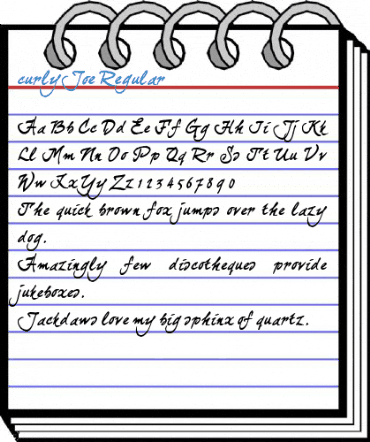 curly Joe Regular
Aa Bb Cc Dd Ee Ff Gg Hh Ii Jj Kk
Ll Mm Nn Oo Pp Qq Rr Ss Tt Uu Vv
Ww Xx Yy Zz 1 2 3 4 5 6 7 8 9 0
The quick brown fox jumps over the lazy
dog.
Amazingly few discotheques provide
jukeboxes.
Jackdaws love my big sphinx of quartz.